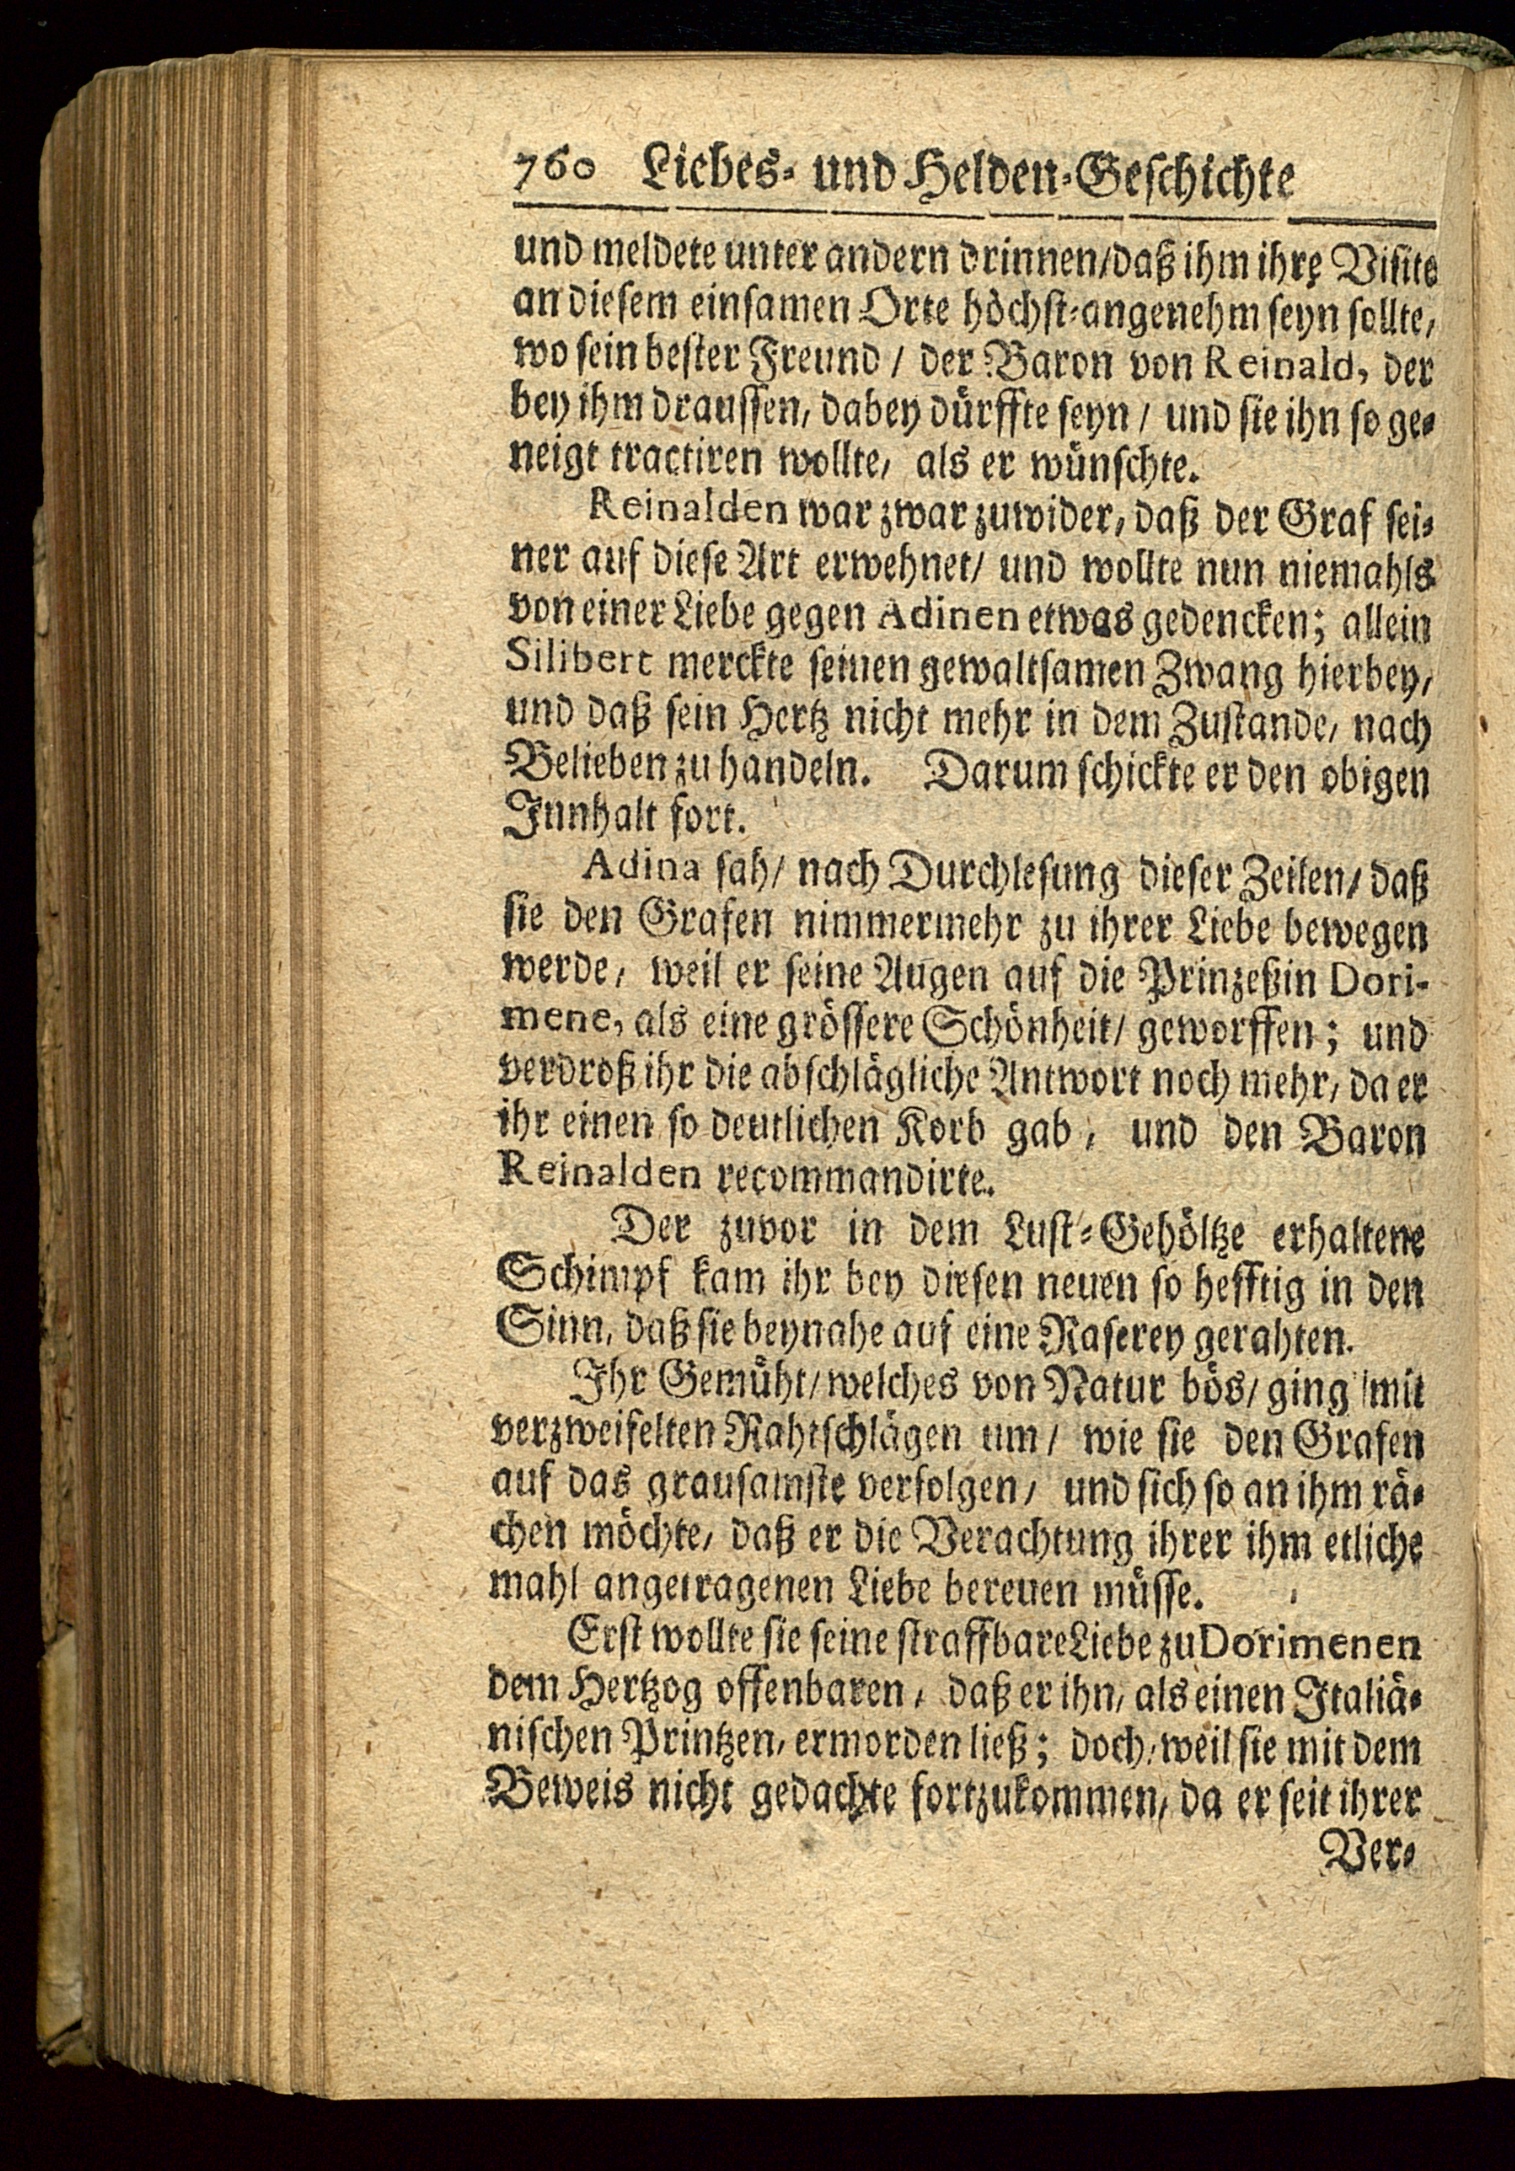 760 Liebes- und Helden-Geschichte
und meldete unter andern drinnen/daß ihm ihre Visite
an diesem einsamen Orte höchst-angenehm seyn sollte,
wo sein bester Freund / der Baron von Reinald, der
bey ihm draussen, dabey dürffte seyn / und sie ihn so ge-
neigt tractiren wollte, als er wünschte.
Reinalden war zwar zuwider, daß der Graf sei-
ner auf diese Art erwehnet/ und wollte nun niemahls
von einer Liebe gegen Adinen etwas gedencken; allein
Silibert merckte seinen gewaltsamen Zwang hierbey,
und daß sein Hertz nicht mehr in dem Zustande, nach
Belieben zu handeln. Darum schickte er den obigen
Innhalt fort.
Adina sah/ nach Durchlesung dieser Zeilen/ daß
sie den Grafen nimmermehr zu ihrer Liebe bewegen
werde, weil er seine Augen auf die Prinzeßin Dori-
mene, als eine grössere Schönheit/ geworffen; und
verdroß ihr die abschlägliche Antwort noch mehr, da er
ihr einen so deutlichen Korb gab, und den Baron
Reinalden recommandirte.
Der zuvor in dem Lust-Gehöltze erhaltene
Schimpf kam ihr bey diesen neuen so hefftig in den
Sinn, daß sie beynahe auf eine Raserey gerahten.
Ihr Gemüht/ welches von Natur bös/ ging mit
verzweifelten Rahtschlägen um/ wie sie den Grafen
auf das grausamste verfolgen/ und sich so an ihm rä-
chen möchte, daß er die Verachtung ihrer ihm etliche
mahl angetragenen Liebe bereuen müsse.
Erst wollte sie seine straffbare Liebe zu Dorimenen
dem Hertzog offenbaren, daß er ihn, als einen Italiä-
nischen Printzen, ermorden ließ; doch, weil sie mit dem
Beweis nicht gedachte fortzukommen, da er seit ihrer
Ver-